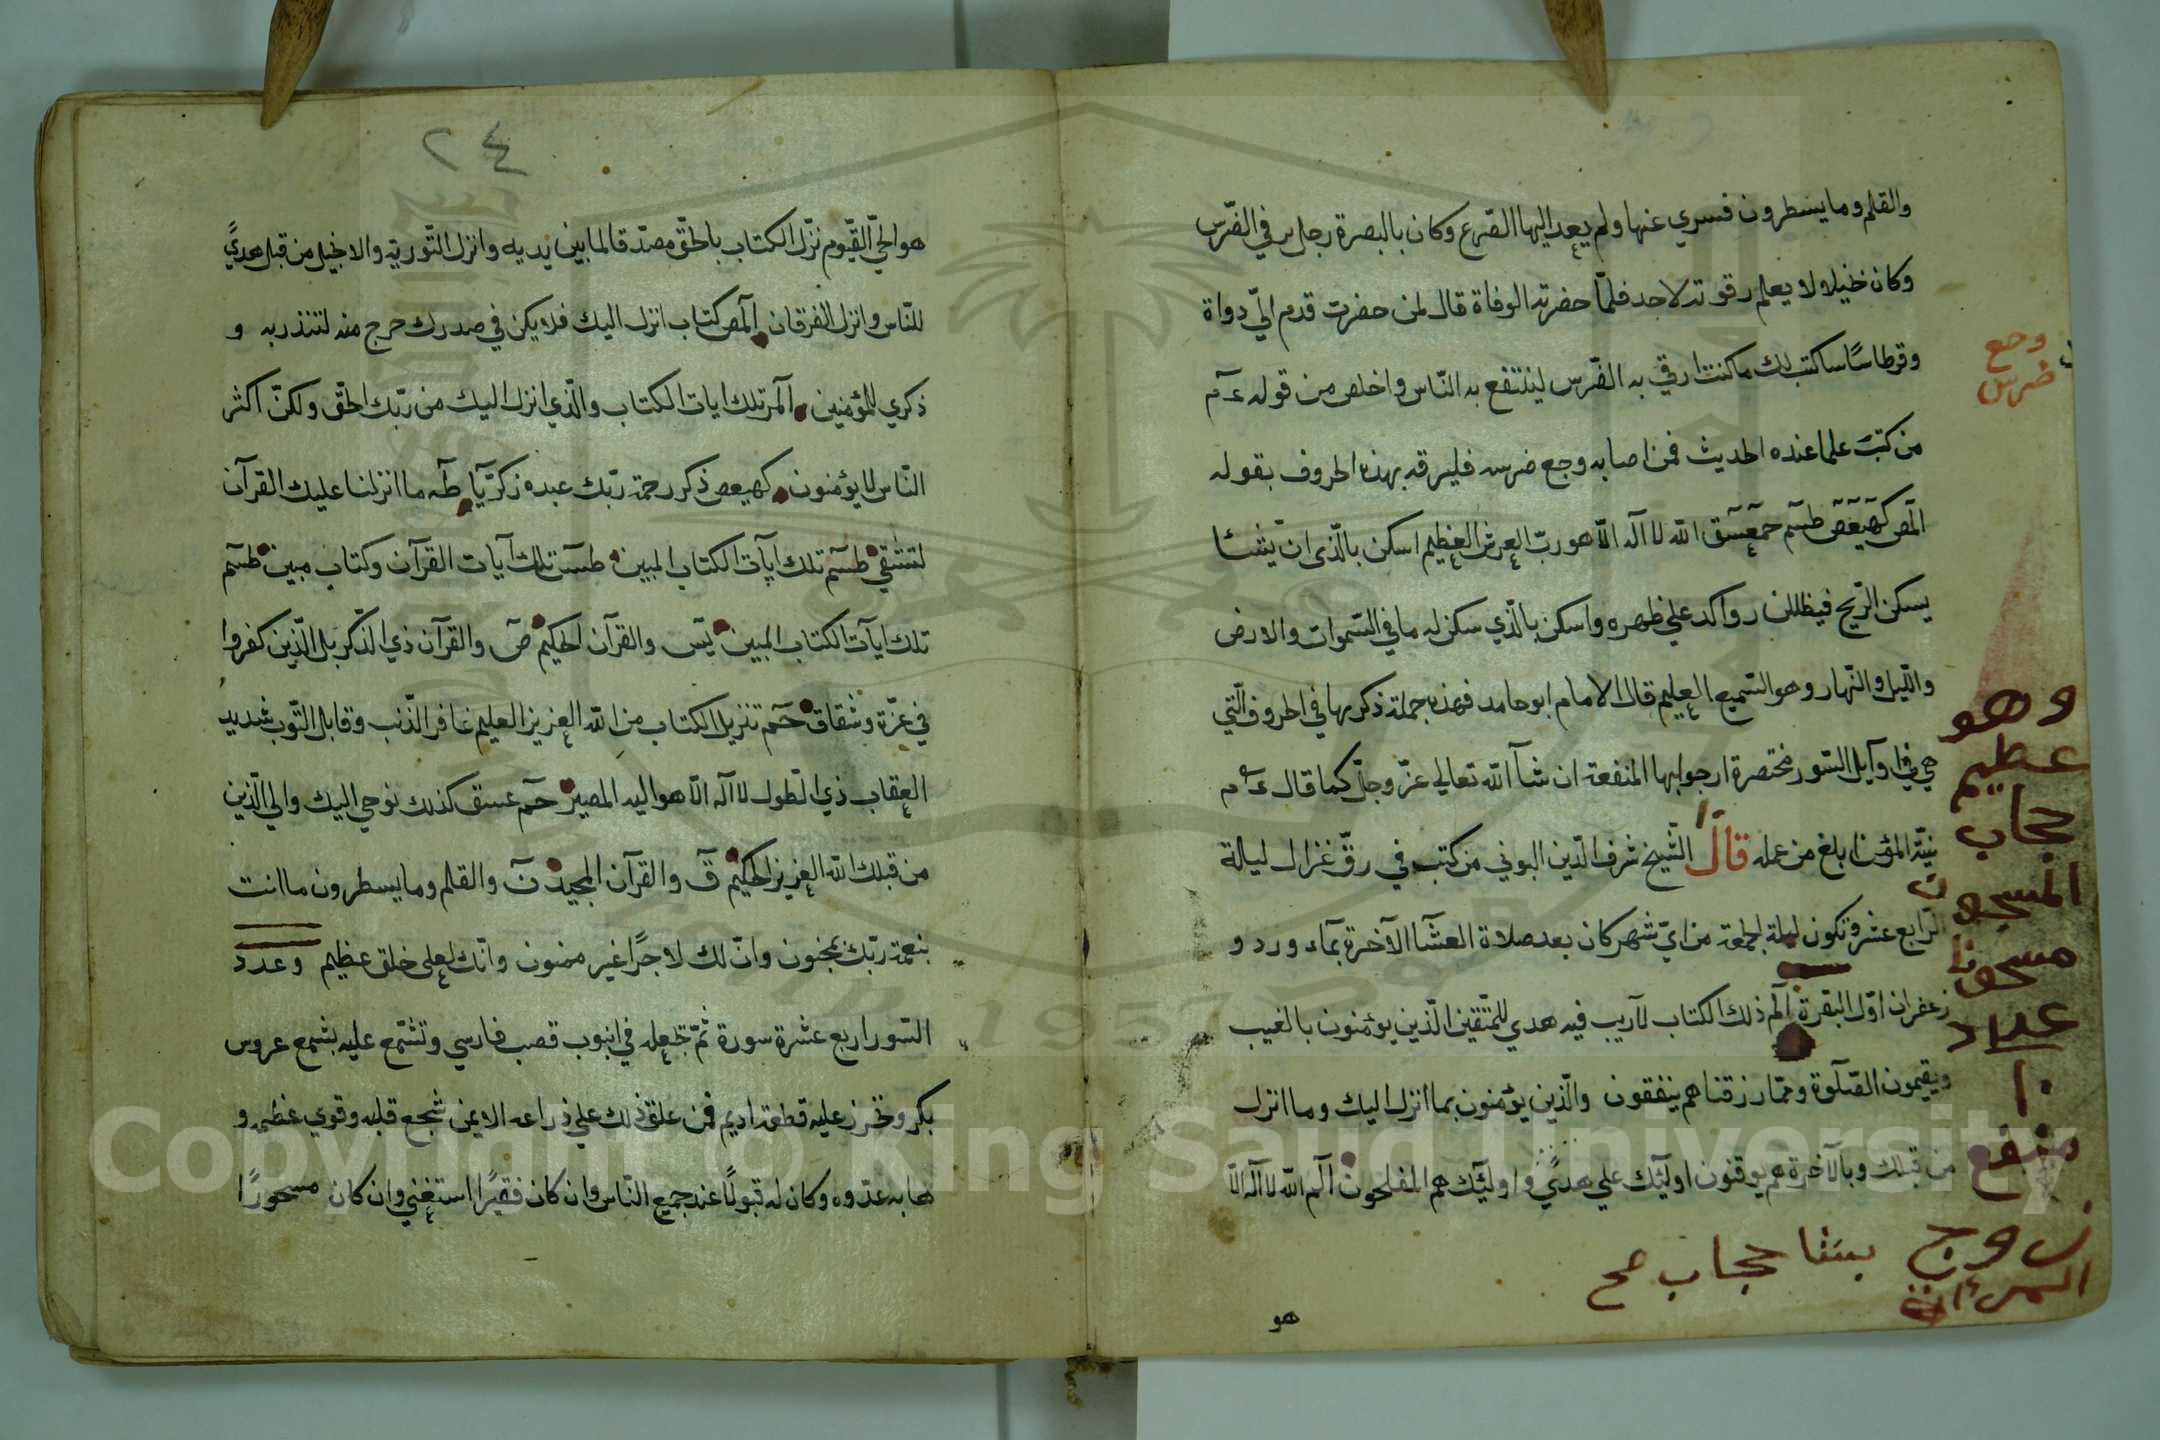 والقلم وما يسطرون فسري عنها ولم يعد اليها الصرع وكان بالبصرة رجل في الضرس
وكان بخيلا لا يعلم رقوته لاحد فلما حضرته الوفاة قال لمن حضرت قدم الي دواة
وقرطاسا ساكتب لك ما كنت ارقي به الضرس لينتفع به الناس واخلص من قوله عم
من كتب علما عنده الحديث فمن اصابه وجع ضرس فليرقه بهذه الحروف بقوله
المص كهيعص طسم حمعسق الله لا اله الا هو رب العرش العظيم اسكن بالذي ان يشا
يسكن الريح فيظللن رواكد على ظهره واسكن بالذي سكن له ما في السموات والارض
والليل والنهار وهو السميع العليم قال الامام ابو حامد فهذه جملة ذكر بها في الحروف التي
هي في اوايل السور مختصرة ارجو ابها المنفعة ان شآ الله تعالي عز وجل كما قال عم
نية المؤمن ابلغ من عمله قال الشيخ شرف الدين البوني من كتب في رق غزال ليلة
الرابع عشر وتكون ليلة الجمعة من اي شهر كان بعد صلاة العشآ الآخرة بمآء ورد و
زعفران اول البقرة الم ذلك الكتاب لا ريب فيه هدي للمتقين الذين يؤمنون بالغيب
ويقيمون الصلوة ومما رزقناهم ينفقون والذين يؤمنون بما انزل اليك وما انزل
من قبلك وبالآخرة هم يوقنون اولئك علي هدي واولئك هم المفلحون الم الله لا اله الا
هو
وجع
ضرس
وهو
عظيم
حجاب
المسجون
مسحونا
عداد
١٠
منفع
زوج
بينا حجاب صح
٢٤
هو الحي القيوم نزل الكتاب بالحق مصدقا لما بين يديه وانزل التورية والانجيل من قبل هدي
للناس وانزل الفرقان المص كتاب انزل اليك فلا يكن في صدرك حرج منه لتنذر به و
ذكري للمؤمنين المر تلك ايات الكتاب والذي انزل اليك من ربك الحق ولكن اكثر
الناس لا يؤمنون كهيعص ذكر رحمة ربك عبده زكريآ طه ما انزلنا عليك القرآن
لتشقي طسم تلك آيات الكتاب المبين طس تلك آيات القرآن وكتاب مبين طسم
تلك ايات الكتاب المبين يس والقرآن الحكيم ص والقرآن ذي الذكر بل الذين كفروا
في عزة وشقاق حم تنزيل الكتاب من الله العزيز العليم غافر الذنب وقابل التوب شديد
العقاب ذي الطول لا اله الا هو اليه المصير حم عسق كذلك نوحي اليك والي الذين
من قبلك الله العزيز الحكيم ق والقرآن المجيد ن والقلم وما يسطرون ما انت
بنعمة ربك بمجنون وان لك لاجرا غير ممنون وانك لعلى خلق عظيم وعدد
السور اربع عشرة سورة ثم تجعله في انبوب قصب فارسي وتشمع عليه بشمع عروس
بكر وتخرز عليه قطعة اديم فمن علق ذلك علي ذراعه الايمن شجع قلبه وقوي عظمه و
هابه عدوه وكان له قبولا عند جميع الناس وان كان فقيرا استغني وان كان مسحورا
Copyright © King Saud University
1957